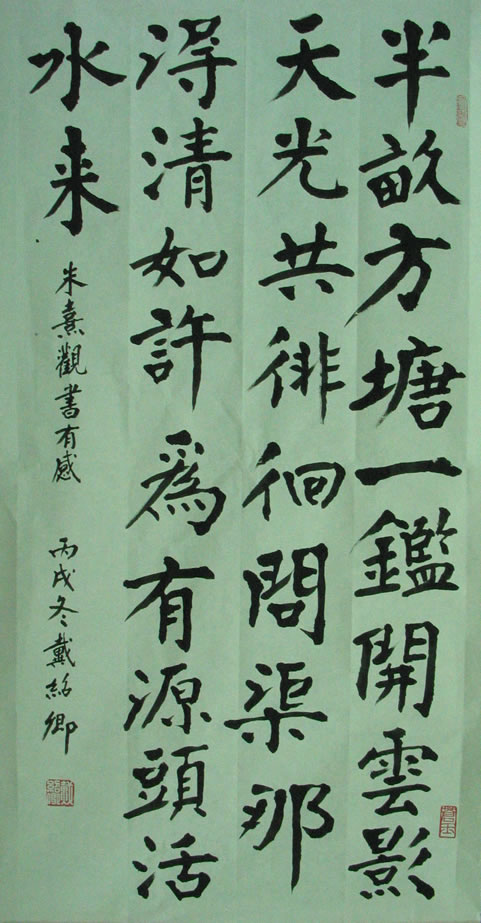 半畝方塘一鑑開雲影
天光共徘徊問渠那
得清如許爲有源頭活
水来
朱熹觀書有感 丙戌冬戴紹卿